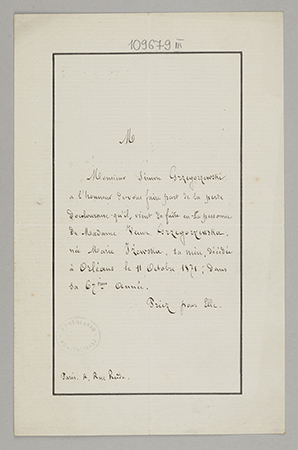 109679 III
M
Monsieur Simon Grzegorzewski
a l'honneur de vous faire part de la perte
douloureuse qu'il vient de faire en la personne
de Madame Veuve Grzegorzewska,
née Marie, sa mère, décédée
à Orléans le 11 Octobre 1871, dans
sa 67ème Année.
Priez pour Elle.
Paris. 4, Rue